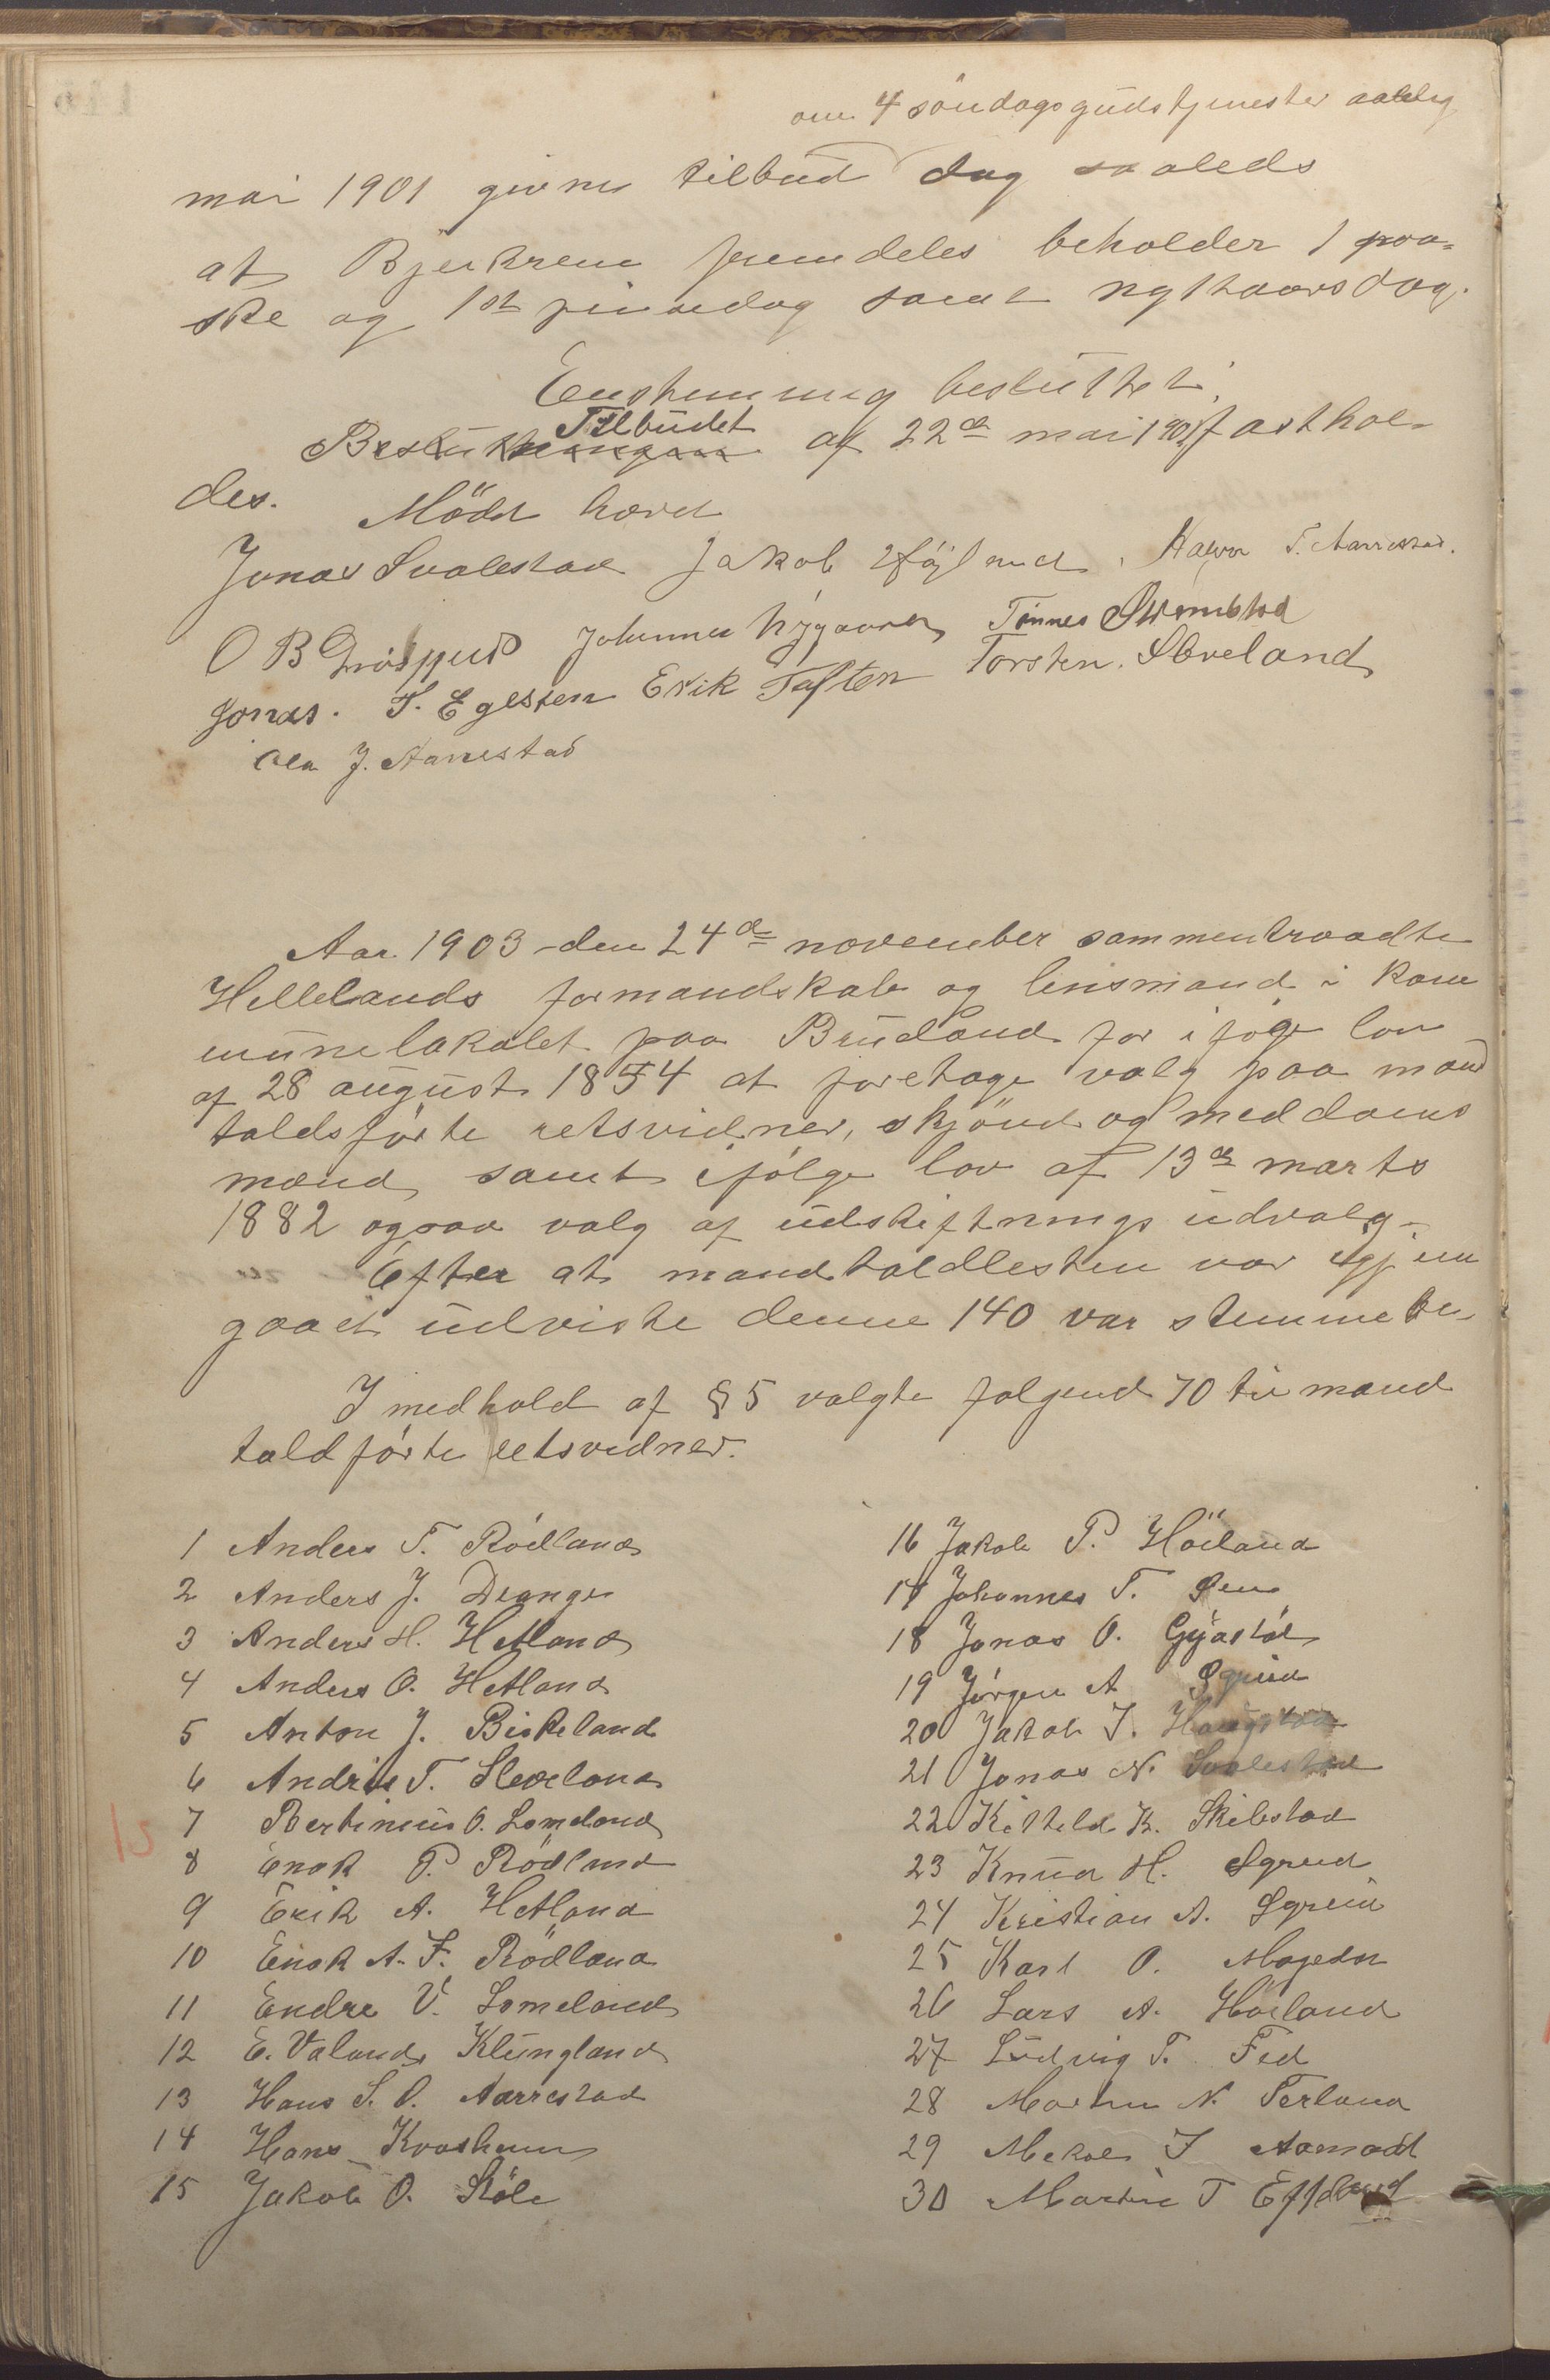 om 4 söndagsgudstjenester aarlig
mai 1901 givne tilbud dog saaleds
at Bjerkrem fremdeles beholder 1 paa-
ske og 1st pinsedag samt nythaarsdag.
Enstemmig besluthet:
Tilbudet
af 22de mai 1901 fasthol-
des. Mödet hævet
Jonas Svalestad Jakob Højland, Halvor T. Aarrestad.
O B Johannes Nygaard Tönnes Strømstad
Jonas. S. Egesten Erik Toften Torsten. Sleveland
Ola J. Aarrestad
Aar 1903 den 24de november sammentraadte
Hellelands formandskab og lensmand i kom
munelokalet paa Brudland for ifølge lov
af 28 august 1854 at foretage valg paa mand
taldsförte retsvidner, skjönd og meddoms
mænd samt ifølge lov af 13de marts
1882 ogsaa valg af udskiftnings udvalg.
Efter at mandtaldlesten var igjem
gaaet udviste denne 140 var stemmebe-
I medhold af § 5 valgte folgend 70 til mand
taldførte retsvidner.
1 Anders T. Rödland
2 Anders J. Drange
3 Anders H. Hetland
4 Anders O. Hetland
5 Anton J. Birkeland
6 Andrias T. Sleveland
7 Bertinius O. Lomeland
8 Enok P. Rödland
9 Erik A. Hetland
10 Enok A. F. Rödland
11 Endre V. Lomeland
12 E. Valand Klungland
13 Hans S. O. Aarrestad
14 Hans Kvasheim
15 Jakob O. Stöle
16 Jakob P. Höiland
17 Johannes T.
18 Jonas O. Gyastöl
19 Jörgen A Sgrud
20 Jakob J. Haugstad
21 Jonas N. Svalestad
22 Kitteld K. Skibstad
23 Knud H. Egrud
24 Kristian A. Egrud
25 Karl O. Mogedal
26 Lars A. Höiland
27 Ludvig T. Fed
28 Martin N. Terland
29 Mikal J Aamodt
30 Martin T Efteland